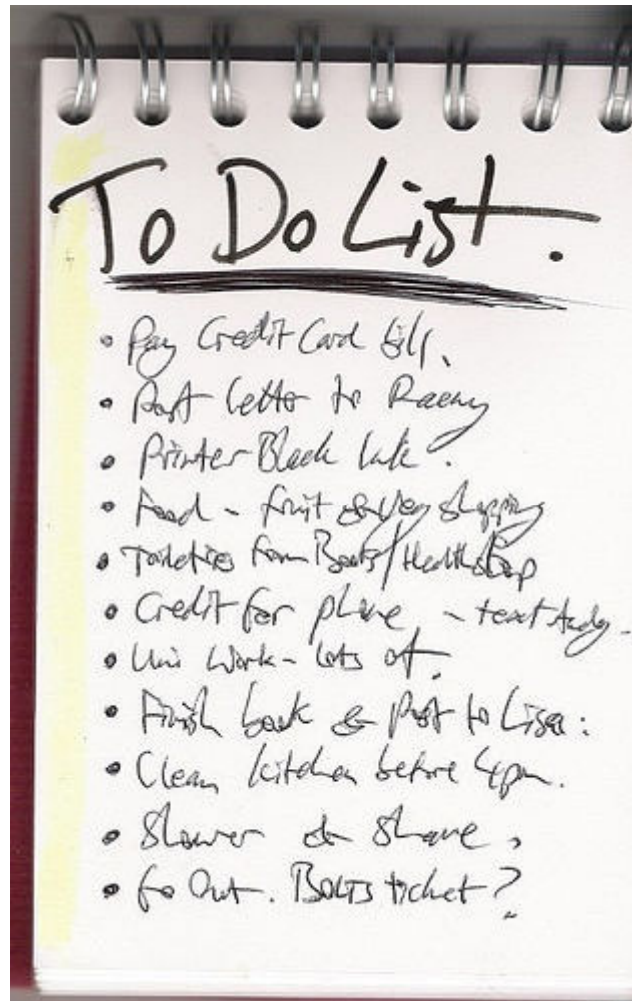 To Do List.
• Pay Credit Card bill.
• Post letter to
• Printer Black Ink.
• Food - fruit & veg shopping
• Toiletries from Boots/Health Shop
• Credit for phone - text Andy.
• Uni Work - lots of.
• Finish book & Post to Lisa.
• Clean kitchen before 4pm.
• Shower & Shave,
• Go Out. ticket?